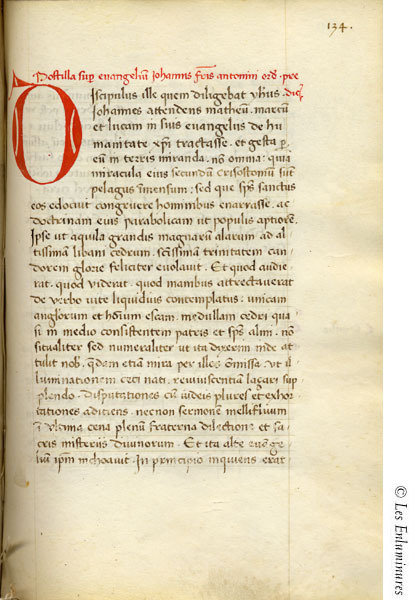 134.
Postilla sup evangeliū Iohannis fr̄is antonini ord. pre
dic̄
Discipulus ille quem diligebat yhus
Iohannes attendens matheū. marcū
et lucam in suis evangelijs de hu
manitate xp̄i tractasse. et gesta p
eū in terris miranda. nō omnia: quia
miracula eius secundū crisostomū sūt
pelagus īmensum: sed que sp̄s sanctus
eos edocuit congruere hominibus enarrasse. ac
doctrinam eius parabolicam ut populis aptiorē.
Ipse ut aquila grandis magnarū alarum ad al
tissimā libani cedrum. scīssimā trinitatem can
dorem glorie feliciter evolavit. Et quod audie
rat. quod viderat. quod manibus attrectaverat
de verbo vite liquidius contemplatus: unicam
anglorum et hoīum escam. medullam cedri qua
si in medio consistentem patris et sp̄s almi. nō
situaliter sed numeraliter ut ita dixerim inde at
tulit nob. quedam etiā mira per illos omissa. ut il
luminationem ceci nati. reviviscentiā laҫari sup
plendo. Disputationes cū iudeis plures et exhor
tationes adiciens. necnon sermonē mellifluum
in ultima cena plenū fraterna dilectione et sa
cris misteriis divinorum. Et ita alte evāge
lium ip̄m inchoavit. In principio inquiens erat
© Les Enluminures